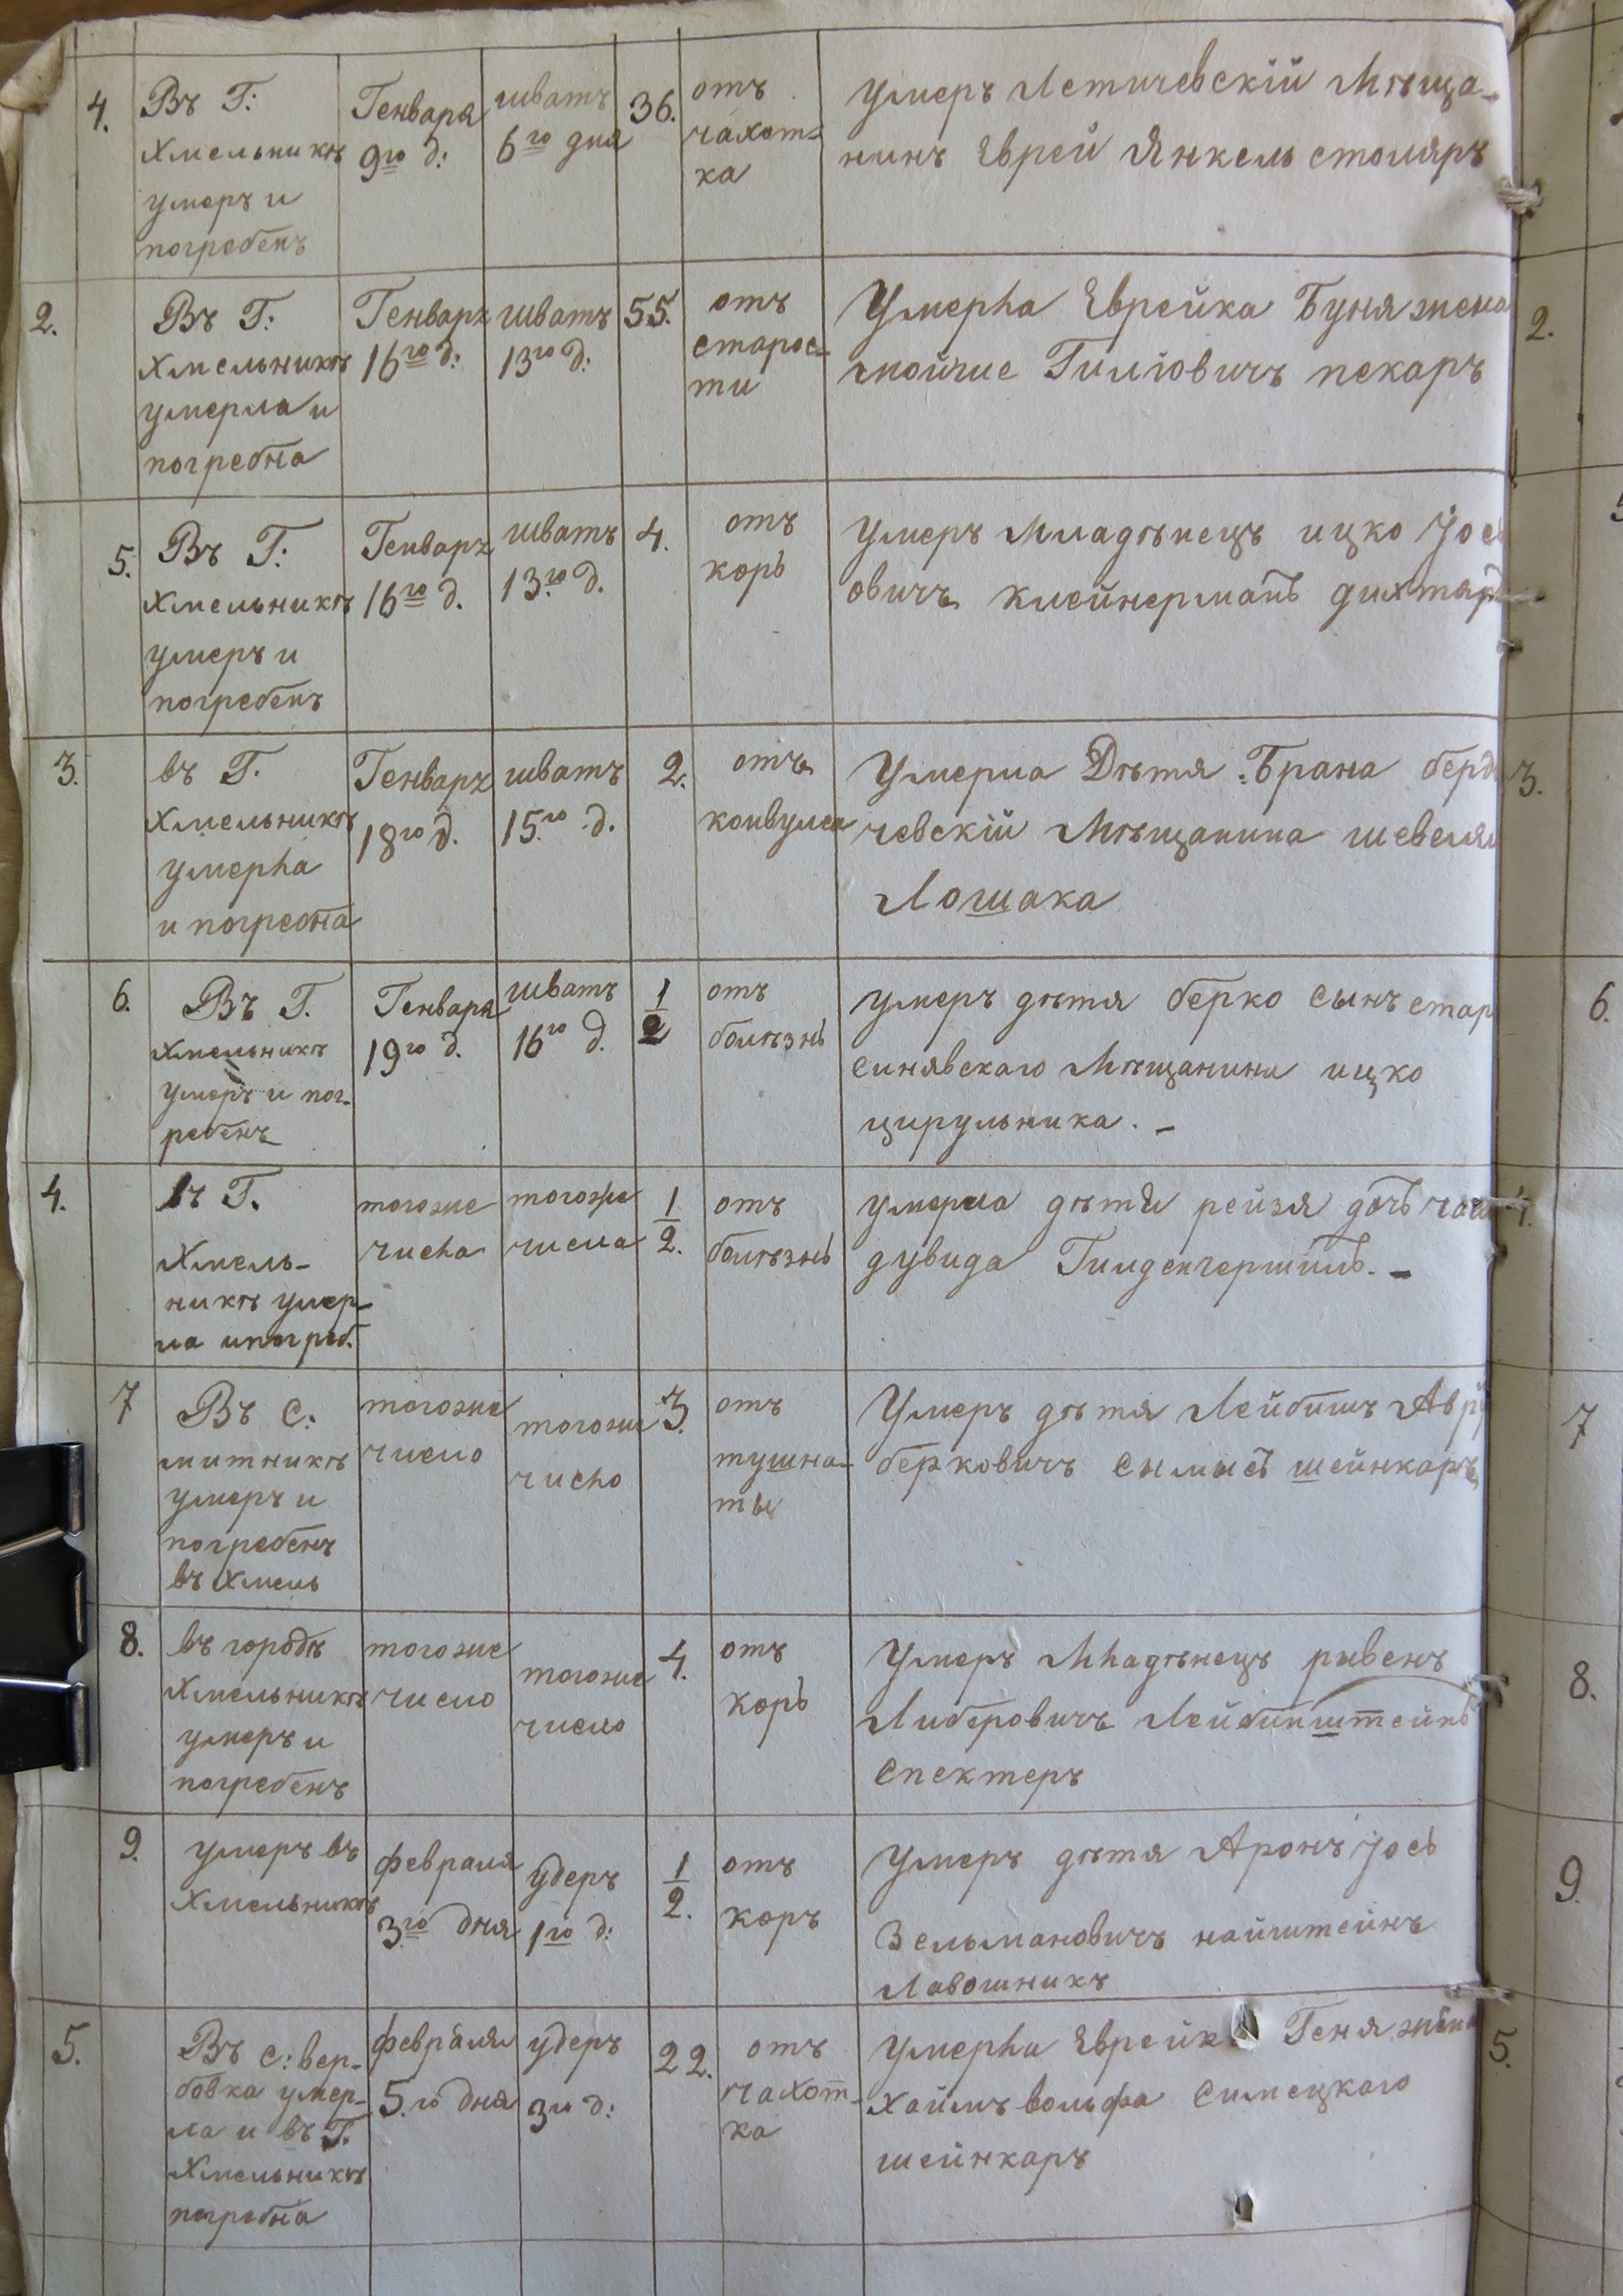 4. Въ Г: Хмельникѣ умеръ и погребенъ
Генваря 9го д:
шватъ 6го дня
36.
отъ чахот- ка
умеръ Летичевскій Мѣща-
нинъ Еврей Янкель столяръ
2. Въ Г: Хмельникѣ умерла и погребна
Генваря 16го д:
шватъ 13го д:
55.
отъ старос- ти
Умерла Еврейка Буня жена
мойше пекаръ
2.
5. Въ Г: Хмельникѣ умеръ и погребенъ
Генваря 16го д.
шватъ 13го д.
4.
отъ корь
умеръ Младѣнецъ ицко Іось
овичъ клейнерманъ
3. въ Г. Хмельникѣ умерла и погребна
Генваря 18го д.
шватъ 15го д.
2.
отъ конвулса
Умерла Дѣтя Брана берд
чевскій Мѣщанина
Лошака
3.
6. Въ Г. Хмельникѣ умеръ и пог- ребенъ
Генваря 19го д.
шватъ 16го д.
1/2
отъ болѣзнь
умеръ дѣтя берко сынъ стар
синявскаго Мѣщанина ицко
цирульника. -
6.
4. въ Г. Хмель- никѣ умер- ла ипогреб.
тогоже числа
тогоже числа
1/2.
отъ болѣзнь
умерла дѣтя рейзя дочь
дувида
4.
7 Въ С: митникѣ умеръ и погребенъ въ Хмель
тогоже число
тогоже число
3.
отъ тушна- ты
Умеръ дѣтя Лейбишъ Авр
берковичъ шейнкаръ
7
8. въ городѣ Хмельникѣ умеръ и погребенъ
тогоже число
тогоже число
4.
отъ корь
Умеръ Младѣнецъ рувенъ
Либеровичъ
спектеръ
8.
9. умеръ въ Хмельникѣ
февраля 3го дня
удеръ 1го д:
1/2.
отъ коръ
Умеръ дѣтя Аронъ Іось
Зельмановичъ найштейнъ
Лавошникъ
9.
5. Въ с: вер- бовка умер- ла и въ Г. Хмельникѣ погребна
февраля 5.го дня
удеръ 3го д:
22.
отъ чахот- ка
умерла Еврейк Геня жена
хаимъ вольфа
шейнкаръ
5.